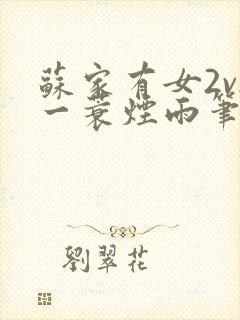 蘇家有女2v
一蓑煙雨筆
劉翠花